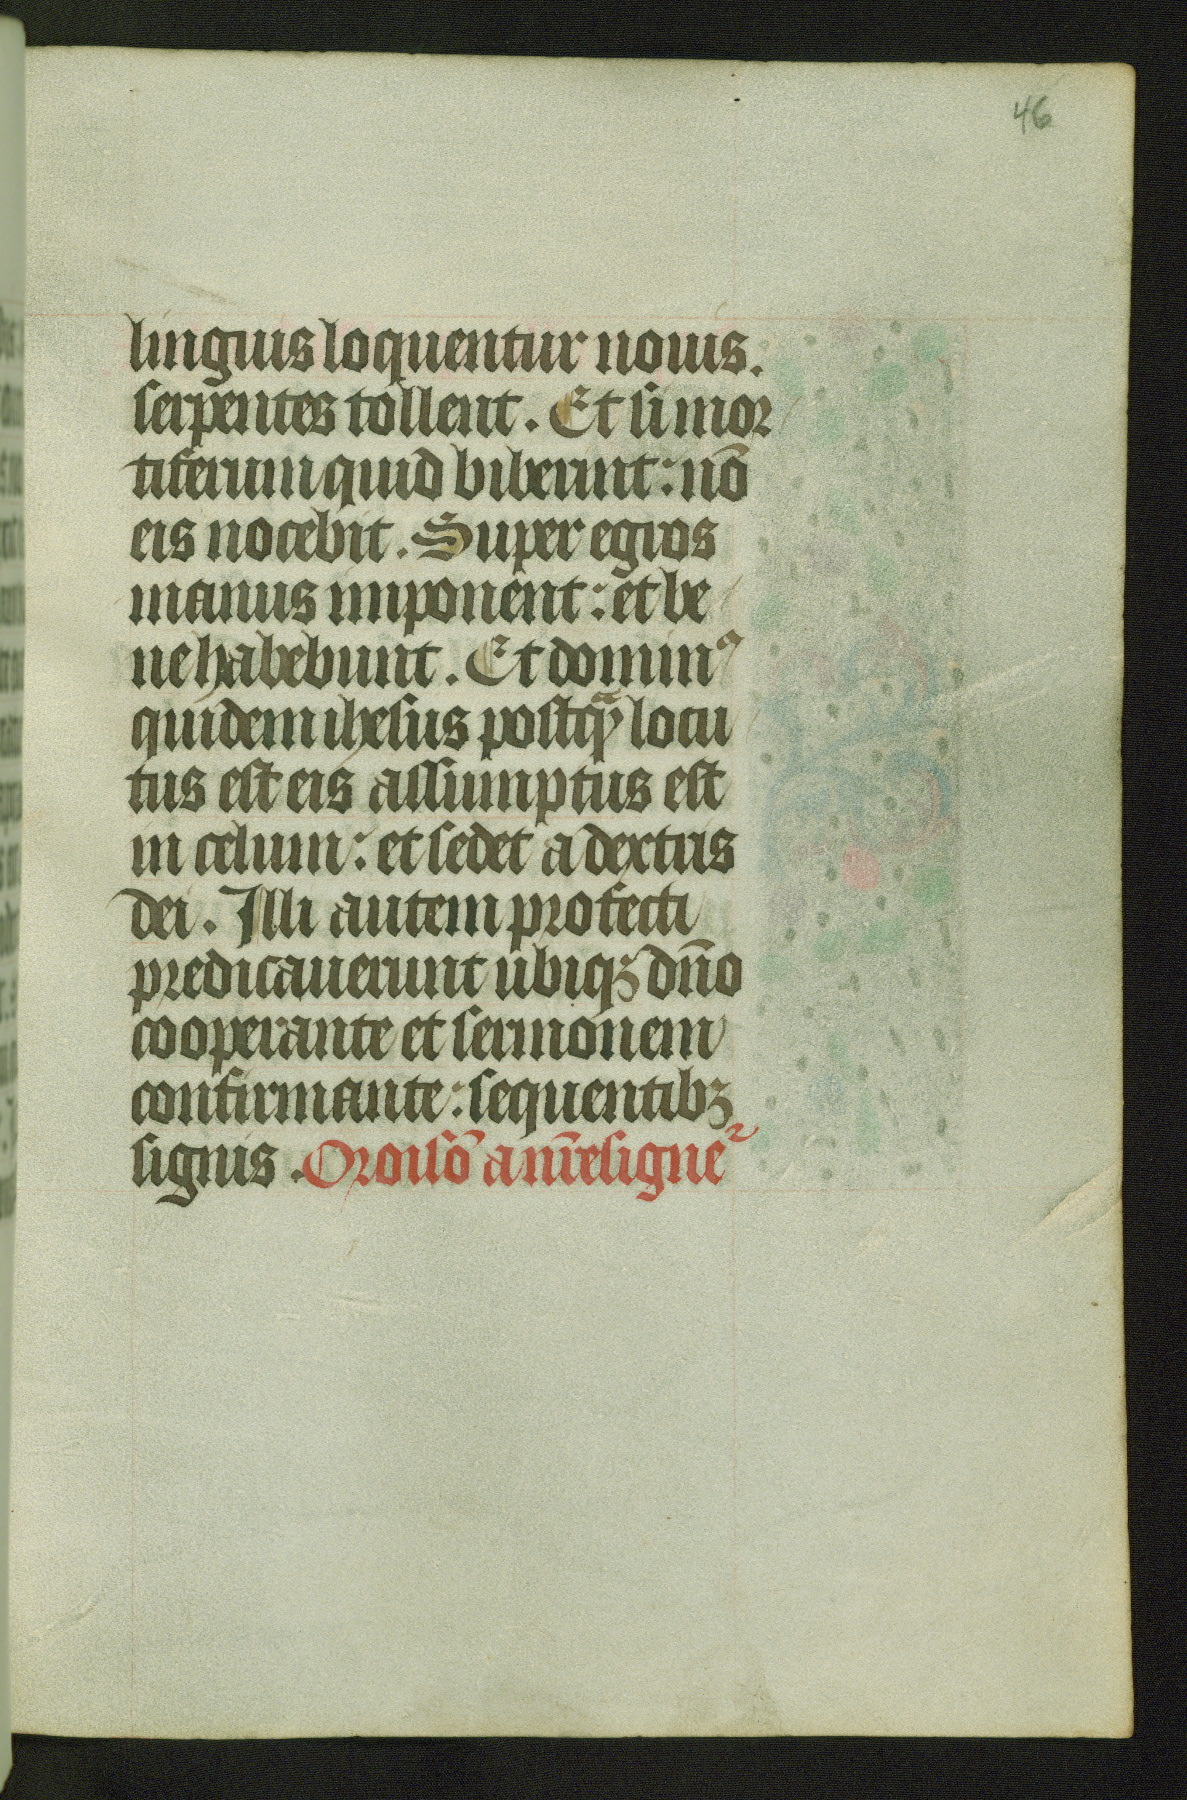 46
linguis loquentur nouis.
serpentes tollent. Et si mor
tiferum quid biberint: nō
eis nocebit. Super egros
manus imponent: et be
ne habebunt. Et dominꝰ
quidem ihesus postqᷓ locu
tus est eis assumptus est
in celum: et sedet a dextris
dei. Illi autem profecti
predicauerunt ubiqꝫ dn̄o
cooperante et sermonem
confirmante: sequentibꝫ
signis. Oroisō a nr̄e signe